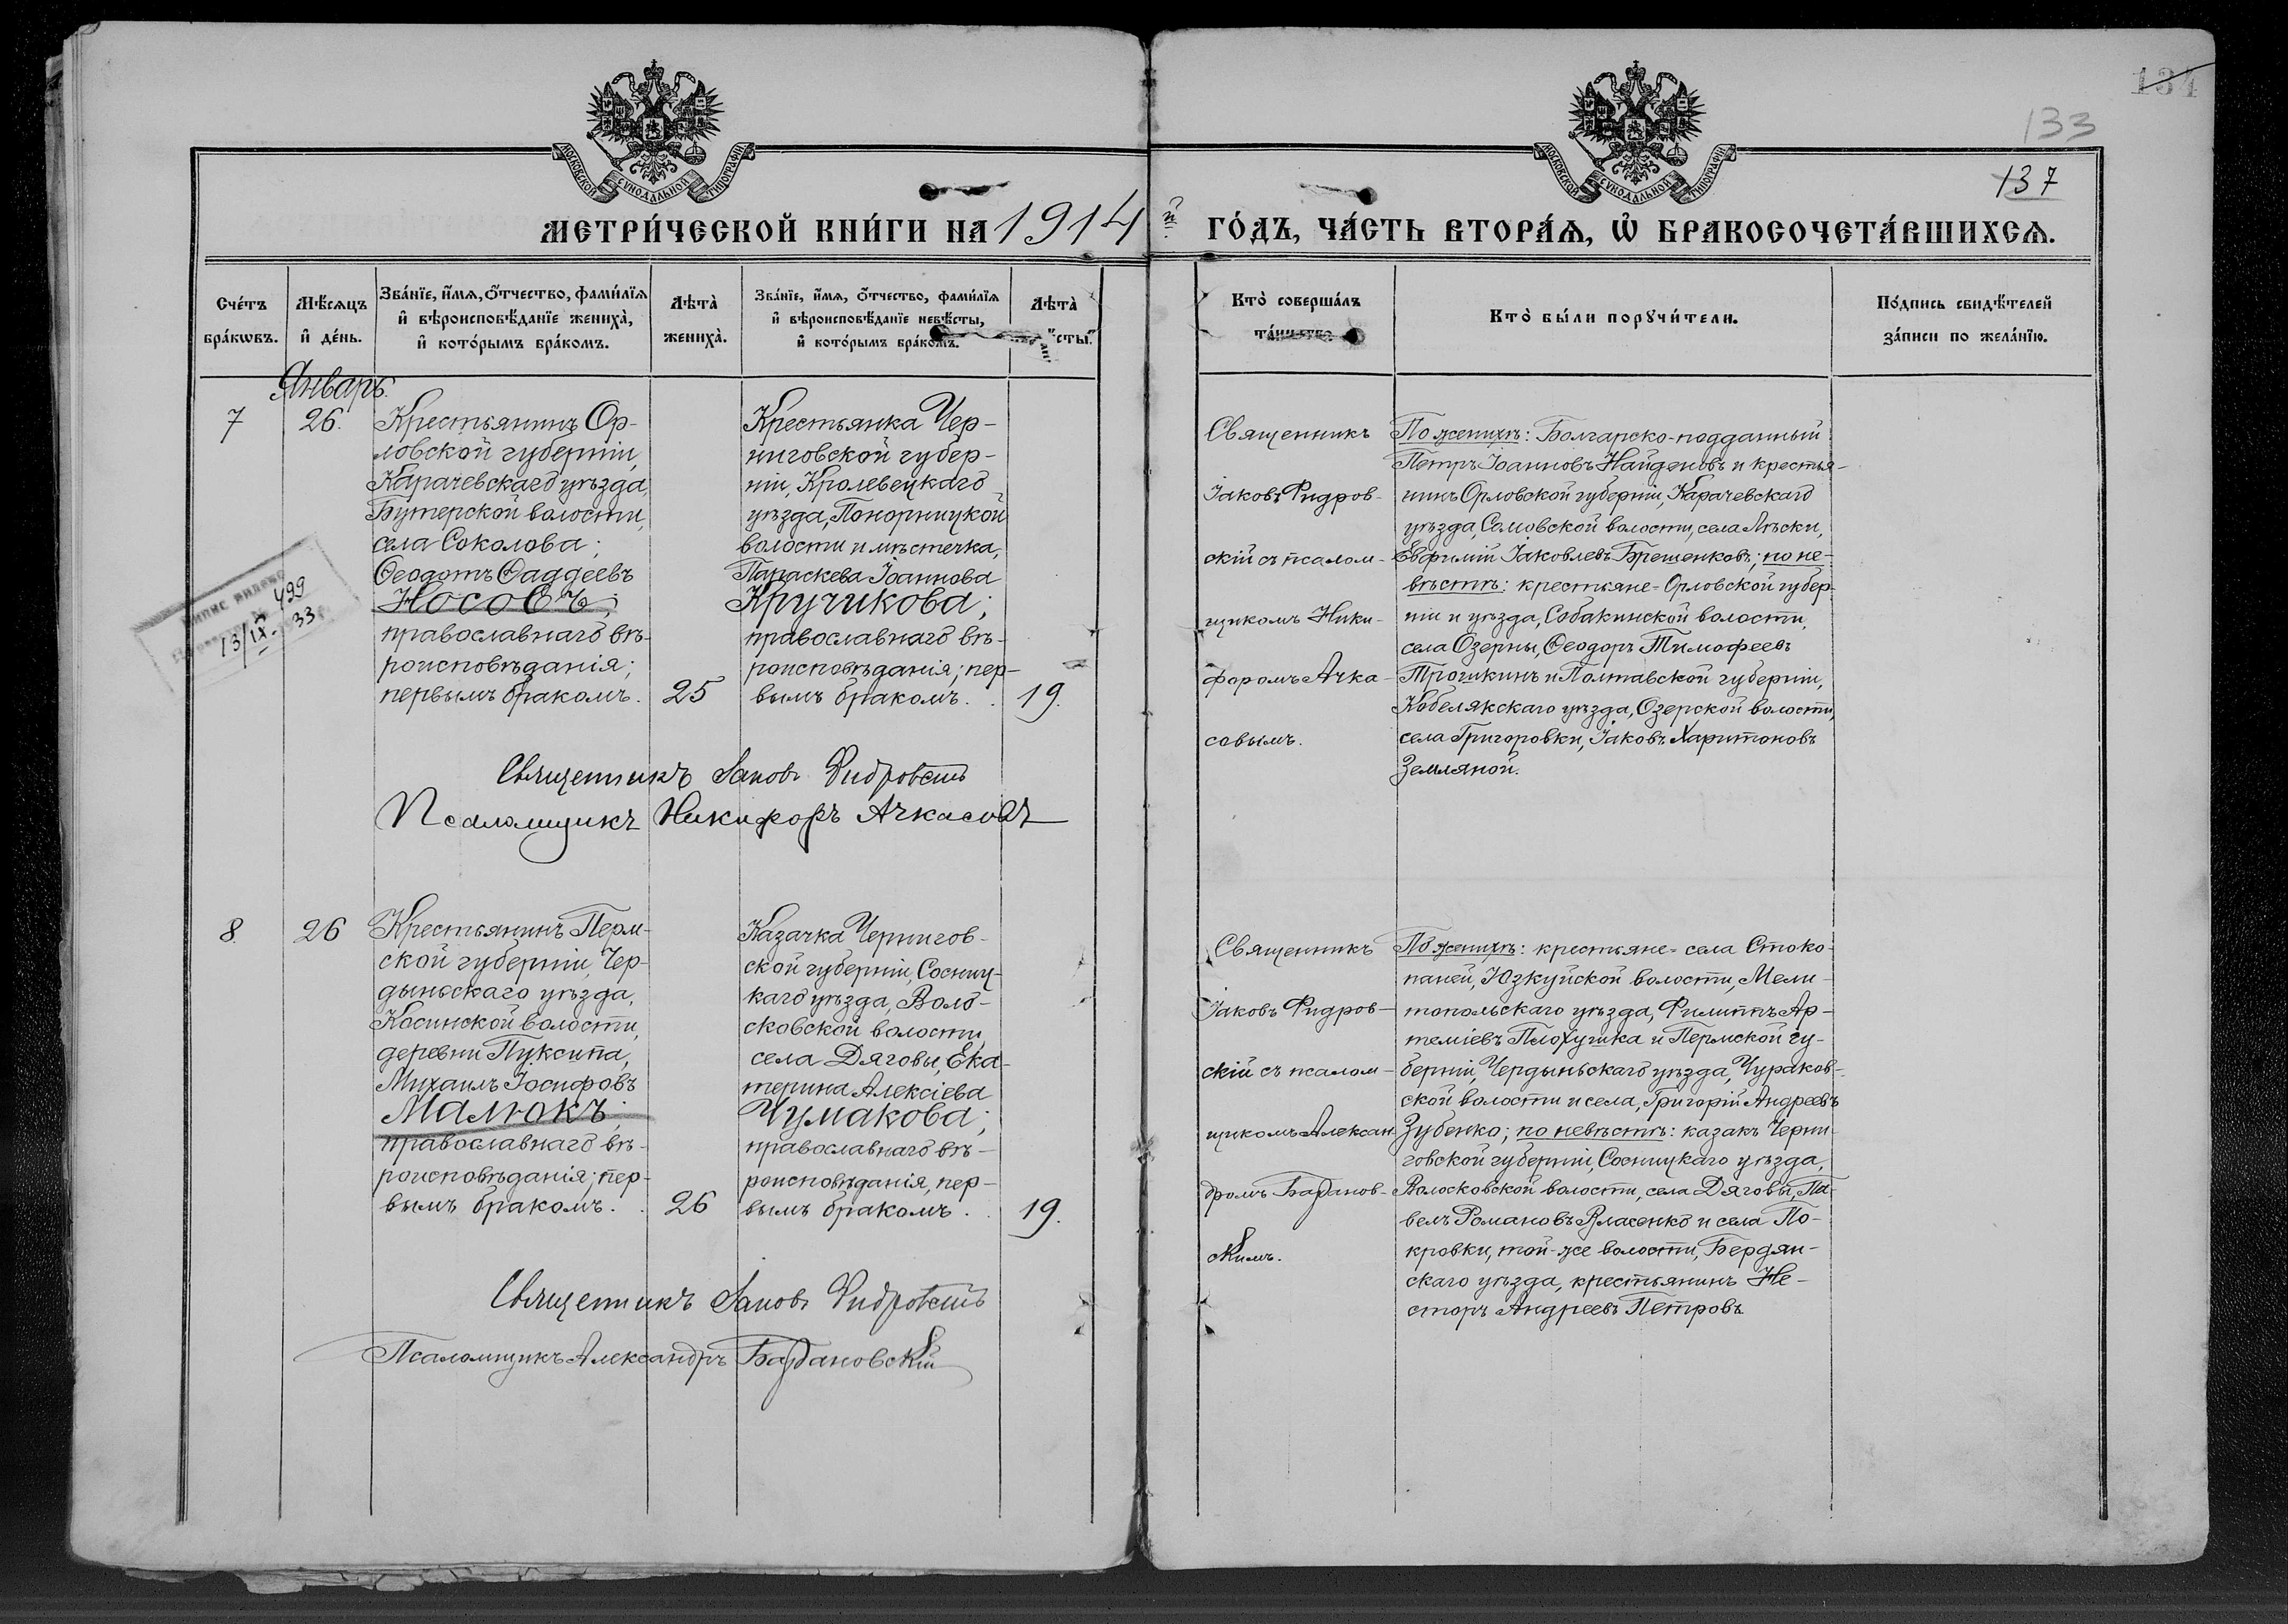 134
133
137
МОСКОВСКОЙ СУНОДАЛЬНОЙ ТИПОГРАФІИ
МОСКОВСКОЙ СУНОДАЛЬНОЙ ТИПОГРАФІИ
МЕТРИ́ЧЕСКОЙ КНИ́ГИ НА 1914 й ГО́ДЪ, ЧА́СТЬ ВТОРА́Я, Ѡ БРАКОСОЧЕТА́ВШИХСЯ.
Сче́тъ бра́кѡвъ.
Мѣ́сяцъ и де́нь.
Зва́нїе, и́мя, ѻ́тчество, фами́лїя
и вѣроисповѣ́данїе жениха̀,
и кото́рымъ бра́комъ.
Лѣта̀ жениха̀.
Зва́нїе, и́мя, ѻ́тчество, фами́лїя
и вѣроисповѣ́данїе невѣ́сты,
и кото́рымъ бра́комъ.
Лѣта̀
сты.
Кто̀ соверша́лъ
та́инство.
Кто̀ бы́ли порꙋчи́тели.
По́дпись свидѣ́телей
за́писи по жела́нїю.
Январь.
7
26.
Крестьянинъ Ор-
ловской губерніи,
Карачевскаго уѣзда,
Бутерской волости,
села Соколова;
Ѳеодотъ Ѳаддеевъ
Носовъ;
православнаго вѣ-
роисповѣданія;
первымъ бракомъ.
25
Крестьянка Чер-
ниговской губер-
ніи, Кролевецкаго
уѣзда, Понорницкой
волости и мѣстечка,
Параскева Іоаннова
Кручикова;
православнаго вѣ-
роисповѣданія; пер-
вымъ бракомъ.
19.
№ 499
13/IX. 33
Священникъ
Іаковъ Фидров-
скій съ псалом-
щикомъ Ники-
форомъ Ачка-
совымъ.
По женихѣ: Болгарско-подданный
Петръ Іоанновъ Найденовъ и крестья-
нинъ Орловской губерніи, Карачевскаго
уѣзда, Сомовской волости, села Лѣски,
Евфимій Іаковлевъ Брешенковъ; по не-
вѣстѣ: крестьяне-Орловской губер-
ніи и уѣзда, Собакинской волости,
села Озерны, Ѳеодоръ Тимофеевъ
Трошкинъ и Полтавской губерніи,
Кобелякскаго уѣзда, Озерской волости,
села Григоровки, Іаковъ Харитоновъ
Земляной.
Священникъ Іаковъ Фидровскій
Псаломщикъ Никифоръ Ачкасовъ
8.
26
Крестьянинъ Перм-
ской губерніи, Чер-
дыньскаго уѣзда,
Косинской волости,
деревни Пуксипа,
Михаилъ Іосифовъ
Малюкъ;
православнаго вѣ-
роисповѣданія; пер-
вымъ бракомъ.
26
Казачка Чернигов-
ской губерніи, Сосниц-
каго уѣзда, Воло-
сковской волости,
села Дяговы, Ека-
терина Алексіева
Чумакова;
православнаго вѣ-
роисповѣданія, пер-
вымъ бракомъ.
19.
Священникъ
Іаковъ Фидров-
скій съ псалом-
щикомъ Алексан-
дромъ Баданов-
скимъ.
По женихѣ: крестьяне-села Стоко-
паней, Юзкуйской волости, Мели-
топольскаго уѣзда, Филиппъ Ар-
теміевъ Плохушка и Пермской гу-
берніи, Чердыньскаго уѣзда, Чураков-
ской волости и села, Григорій Андреевъ
Зубенко; по невѣстѣ: казакъ Черни-
говской губерніи, Сосницкаго уѣзда,
Волосковской волости, села Дяговы, Па-
велъ Романовъ Власенко и села По-
кровки, той-же волости, Бердян-
скаго уѣзда, крестьянинъ Не-
сторъ Андреевъ Петровъ.
Священникъ Іаковъ Фидровскій
Псаломщикъ Александръ Бадановскій